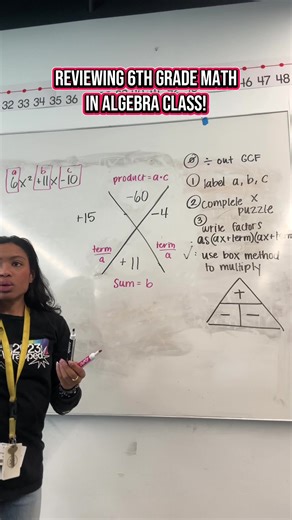 REVIEWING 6TH GRADE MATH
IN ALGEBRA CLASS!
32 33 34 35 36
46 47 48
a b c
6x² +11x -10
product = a·c
-60
+15
-4
term/a
term/a
+11
Sum = b
⓪ ÷ out GCF
① label a, b, c
② complete X
puzzle
③ write factors
as (ax+term)(ax+
√: use box method
to multiply
+
- -
2023